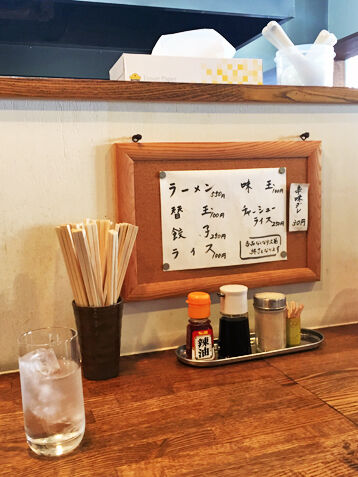 ラーメン 550円
替玉 100円
餃子 250円
ライス 100円
味玉 100円
チャーシューライス 250円
終了となります
薬味ダレ
30円
辣油